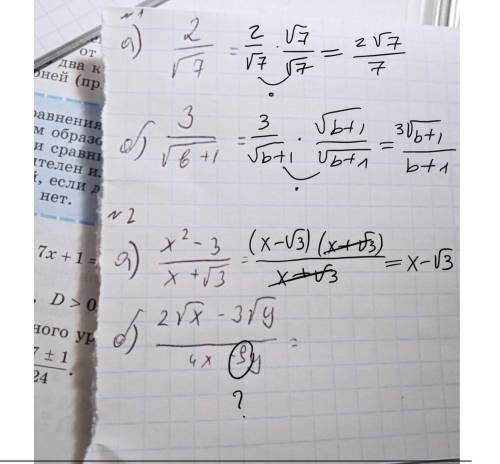 №1
а) 2/√7 = 2/√7 · √7/√7 = 2√7/7
б) 3/√(в+1) = 3/√(b+1) · √(b+1)/√(b+1) = 3√(b+1)/(b+1)
№2
а) (x² - 3)/(x + √3) = (x-√3)(x+√3)/(x+√3) = x-√3
б) (2√x - 3√y)/(4x - 9y) =
?
от
два к
рней (пр
равнения
м образо
и сравни
ителен ил
й, если д
нет.
7x + 1 =
D > 0
ного ур
7 ± 1
24